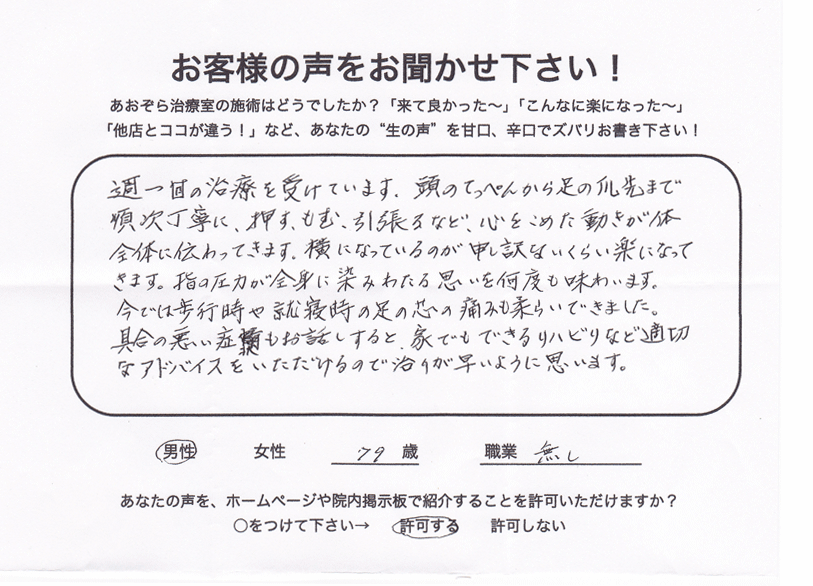 お客様の声をお聞かせ下さい！
あおぞら治療室の施術はどうでしたか？「来て良かった～」「こんなに楽になった～」
「他店とココが違う！」など、あなたの“生の声”を甘口、辛口でズバリお書き下さい！
週一回の治療を受けています。頭のてっぺんから足の爪先まで
順次丁寧に、押す、もむ、引張るなど、心をこめた動きが体
全体に伝わってきます。横になっているのが申し訳ないくらい楽になって
きます。指の圧力が全身に染みわたる思いを何度も味わいます。
今では歩行時や就寝時の足の芯の痛みも柔らいできました。
具合の悪い症状もお話しすると、家でもできるリハビリなど適切
なアドバイスをいただけるので治りが早いように思います。
男性 女性 79 歳 職業 無し
あなたの声を、ホームページや院内掲示板で紹介することを許可いただけますか？
○をつけて下さい→ 許可する 許可しない